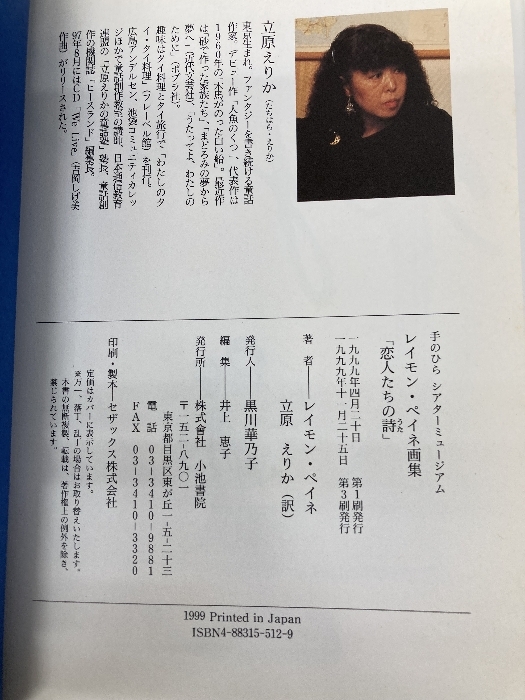 立原えりか（たちはら・えりか）
東京生まれ。ファンタジーを書き続ける童話
作家。デビュー作「人魚のくつ」、代表作は
1960年の「木馬がのった白い船」。最近作
は、「砂で作った家族たち」、「まどろみの夢から
夢へ」（近代文芸社）、「うたってよ、わたしの
ために」（ポプラ社）。
趣味はタイ料理とタイ旅行で「わたしのタ
イ・タイ料理」（フレーベル館）を刊行。
広島アンデルセン、池袋コミュニティカレッ
ジほかで童話創作教室の講師。日本通信教育
連盟の「立原えりかの童話塾」塾長。童話創
作の機関誌「ピースランド」編集長。
97年8月にはCD「We Live」（吉岡しげ美
作曲）がリリースされた。
手のひら シアターミュージアム
レイモン・ペイネ画集
「恋人たちの詩」
うた
一九九九年四月二十日 第1刷発行
一九九九年十一月二十五日 第3刷発行
著 者——レイモン・ペイネ
立原 えりか（訳）
発行人——黒川華乃子
編 集——井上 恵子
発行所——株式會社 小池書院
〒一五二-八九〇一
東京都目黒区東が丘一-五-二十三
電話 03-3410-9881
FAX 03-3410-3320
印刷・製本——セザックス株式会社
定価はカバーに表示しています。
※万一、落丁、乱丁の場合はお取り替えいたします。
本書の無断複製、転載は、著作権上の例外を除き、
禁じられています。
1999 Printed in Japan
ISBN4-88315-512-9